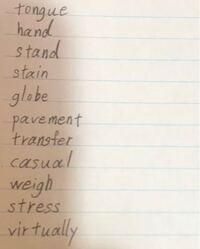 tongue
hand
stand
stain
globe
pavement
transfer
casual
weigh
stress
virtually